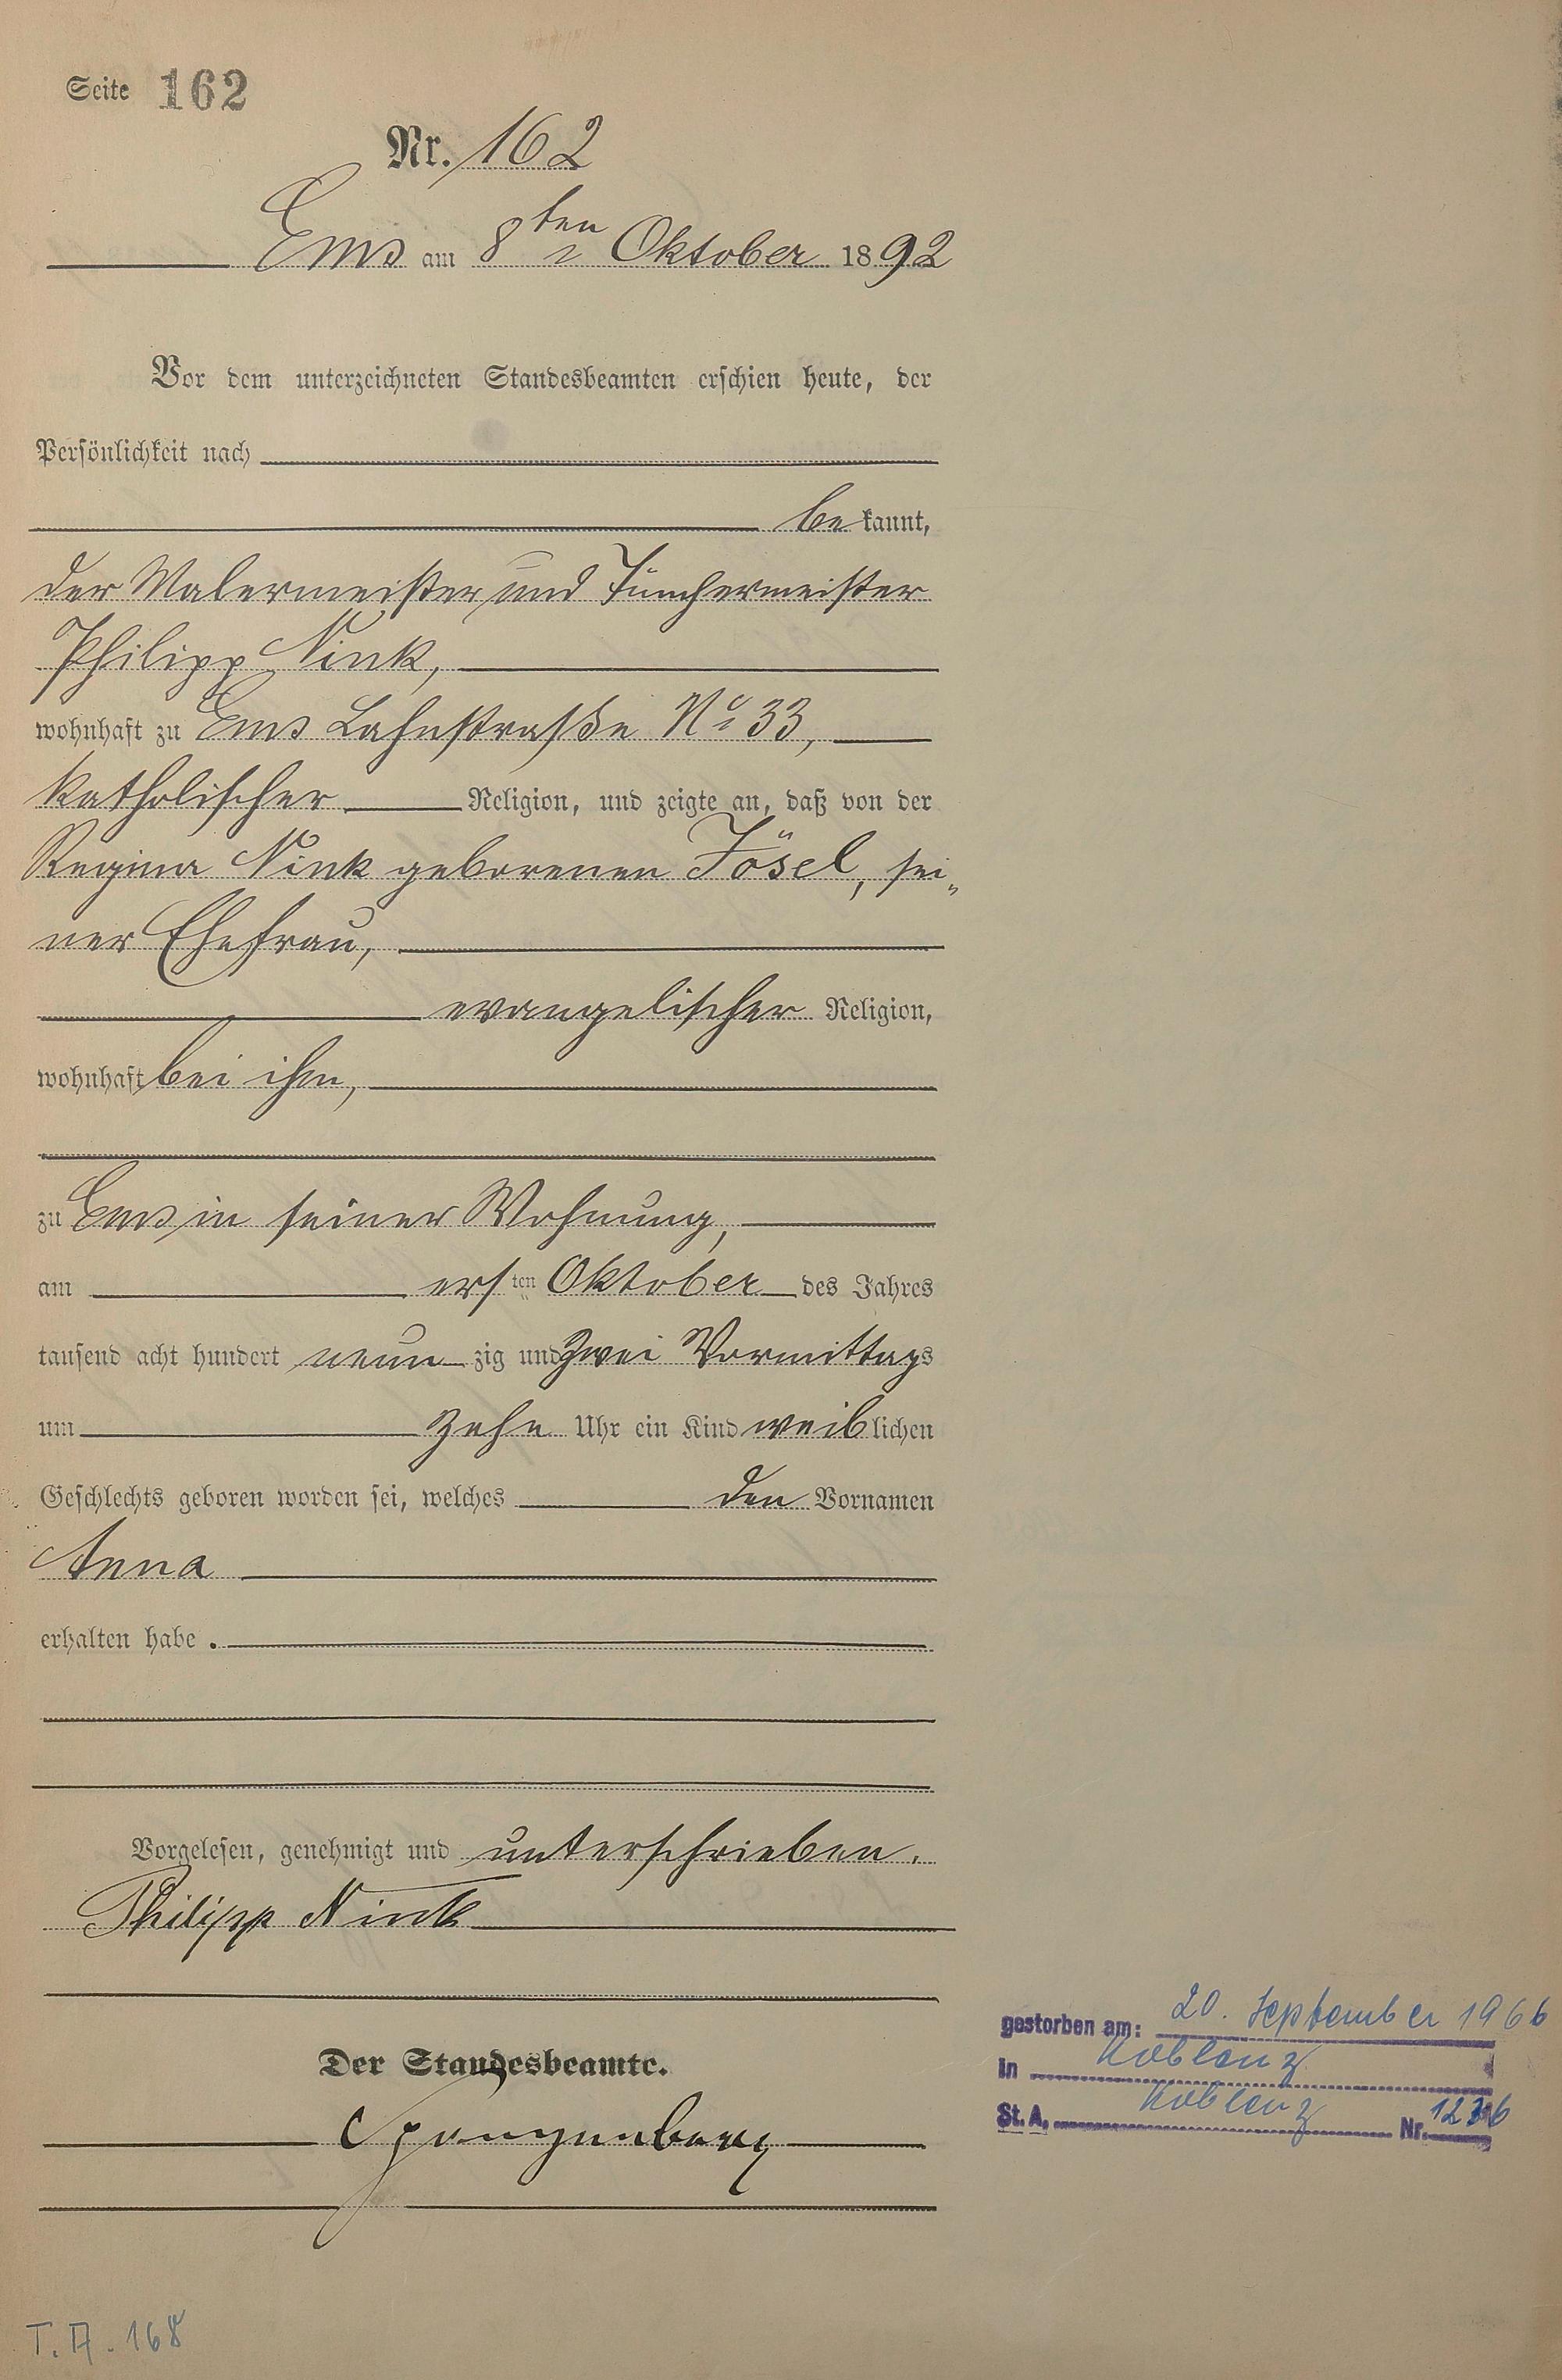 Seite 162
Nr. 162
Ems am 8ten Oktober 1892
Vor dem unterzeichneten Standesbeamten erschien heute, der
Persönlichkeit nach
bekannt,
der Malermeister und Tünchermeister
Philipp Nink,
wohnhaft zu Ems Lahnstraße No 33,
katholischer Religion, und zeigte an, daß von der
Regina Nink geborenen Jösel, sei-
ner Ehefrau,
evangelischer Religion,
wohnhaft bei ihm,
zu Ems in seiner Wohnung,
am ersten Oktober des Jahres
tausend acht hundert neunzig und zwei Vormittags
um zehn Uhr ein Kind weiblichen
Geschlechts geboren worden sei, welches den Vornamen
Anna
erhalten habe.
Vorgelesen, genehmigt und unterschrieben.
Philipp Nink
Der Standesbeamte.
Spangenberg
gestorben am: 20. September 1966
in Koblenz
St. A. Koblenz Nr.
T. A. 168